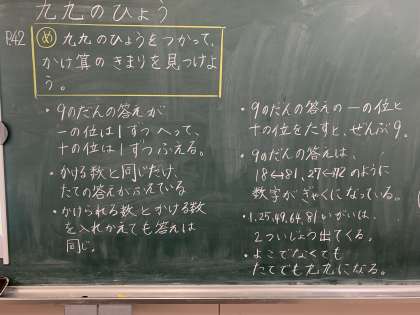 九九のひょう
P.42
め 九九のひょうをつかって、
かけ算のきまりを見つけよ
う。
・9のだんの答えが
一の位は1ずつへって、
十の位は1ずつふえる。
・かける数と同じだけ、
たての答えがふえている
・かけられる数とかける数
を入れかえても答えは
同じ。
・9のだんの答えの一の位と
十の位をたすと、ぜんぶ9。
・9のだんの答えは、
18↔81、27↔72のように
数字がぎゃくになっている。
・1.25.49.64.81いがいは、
2ついじょう出てくる。
・よこでなくても
たてでも九九になる。